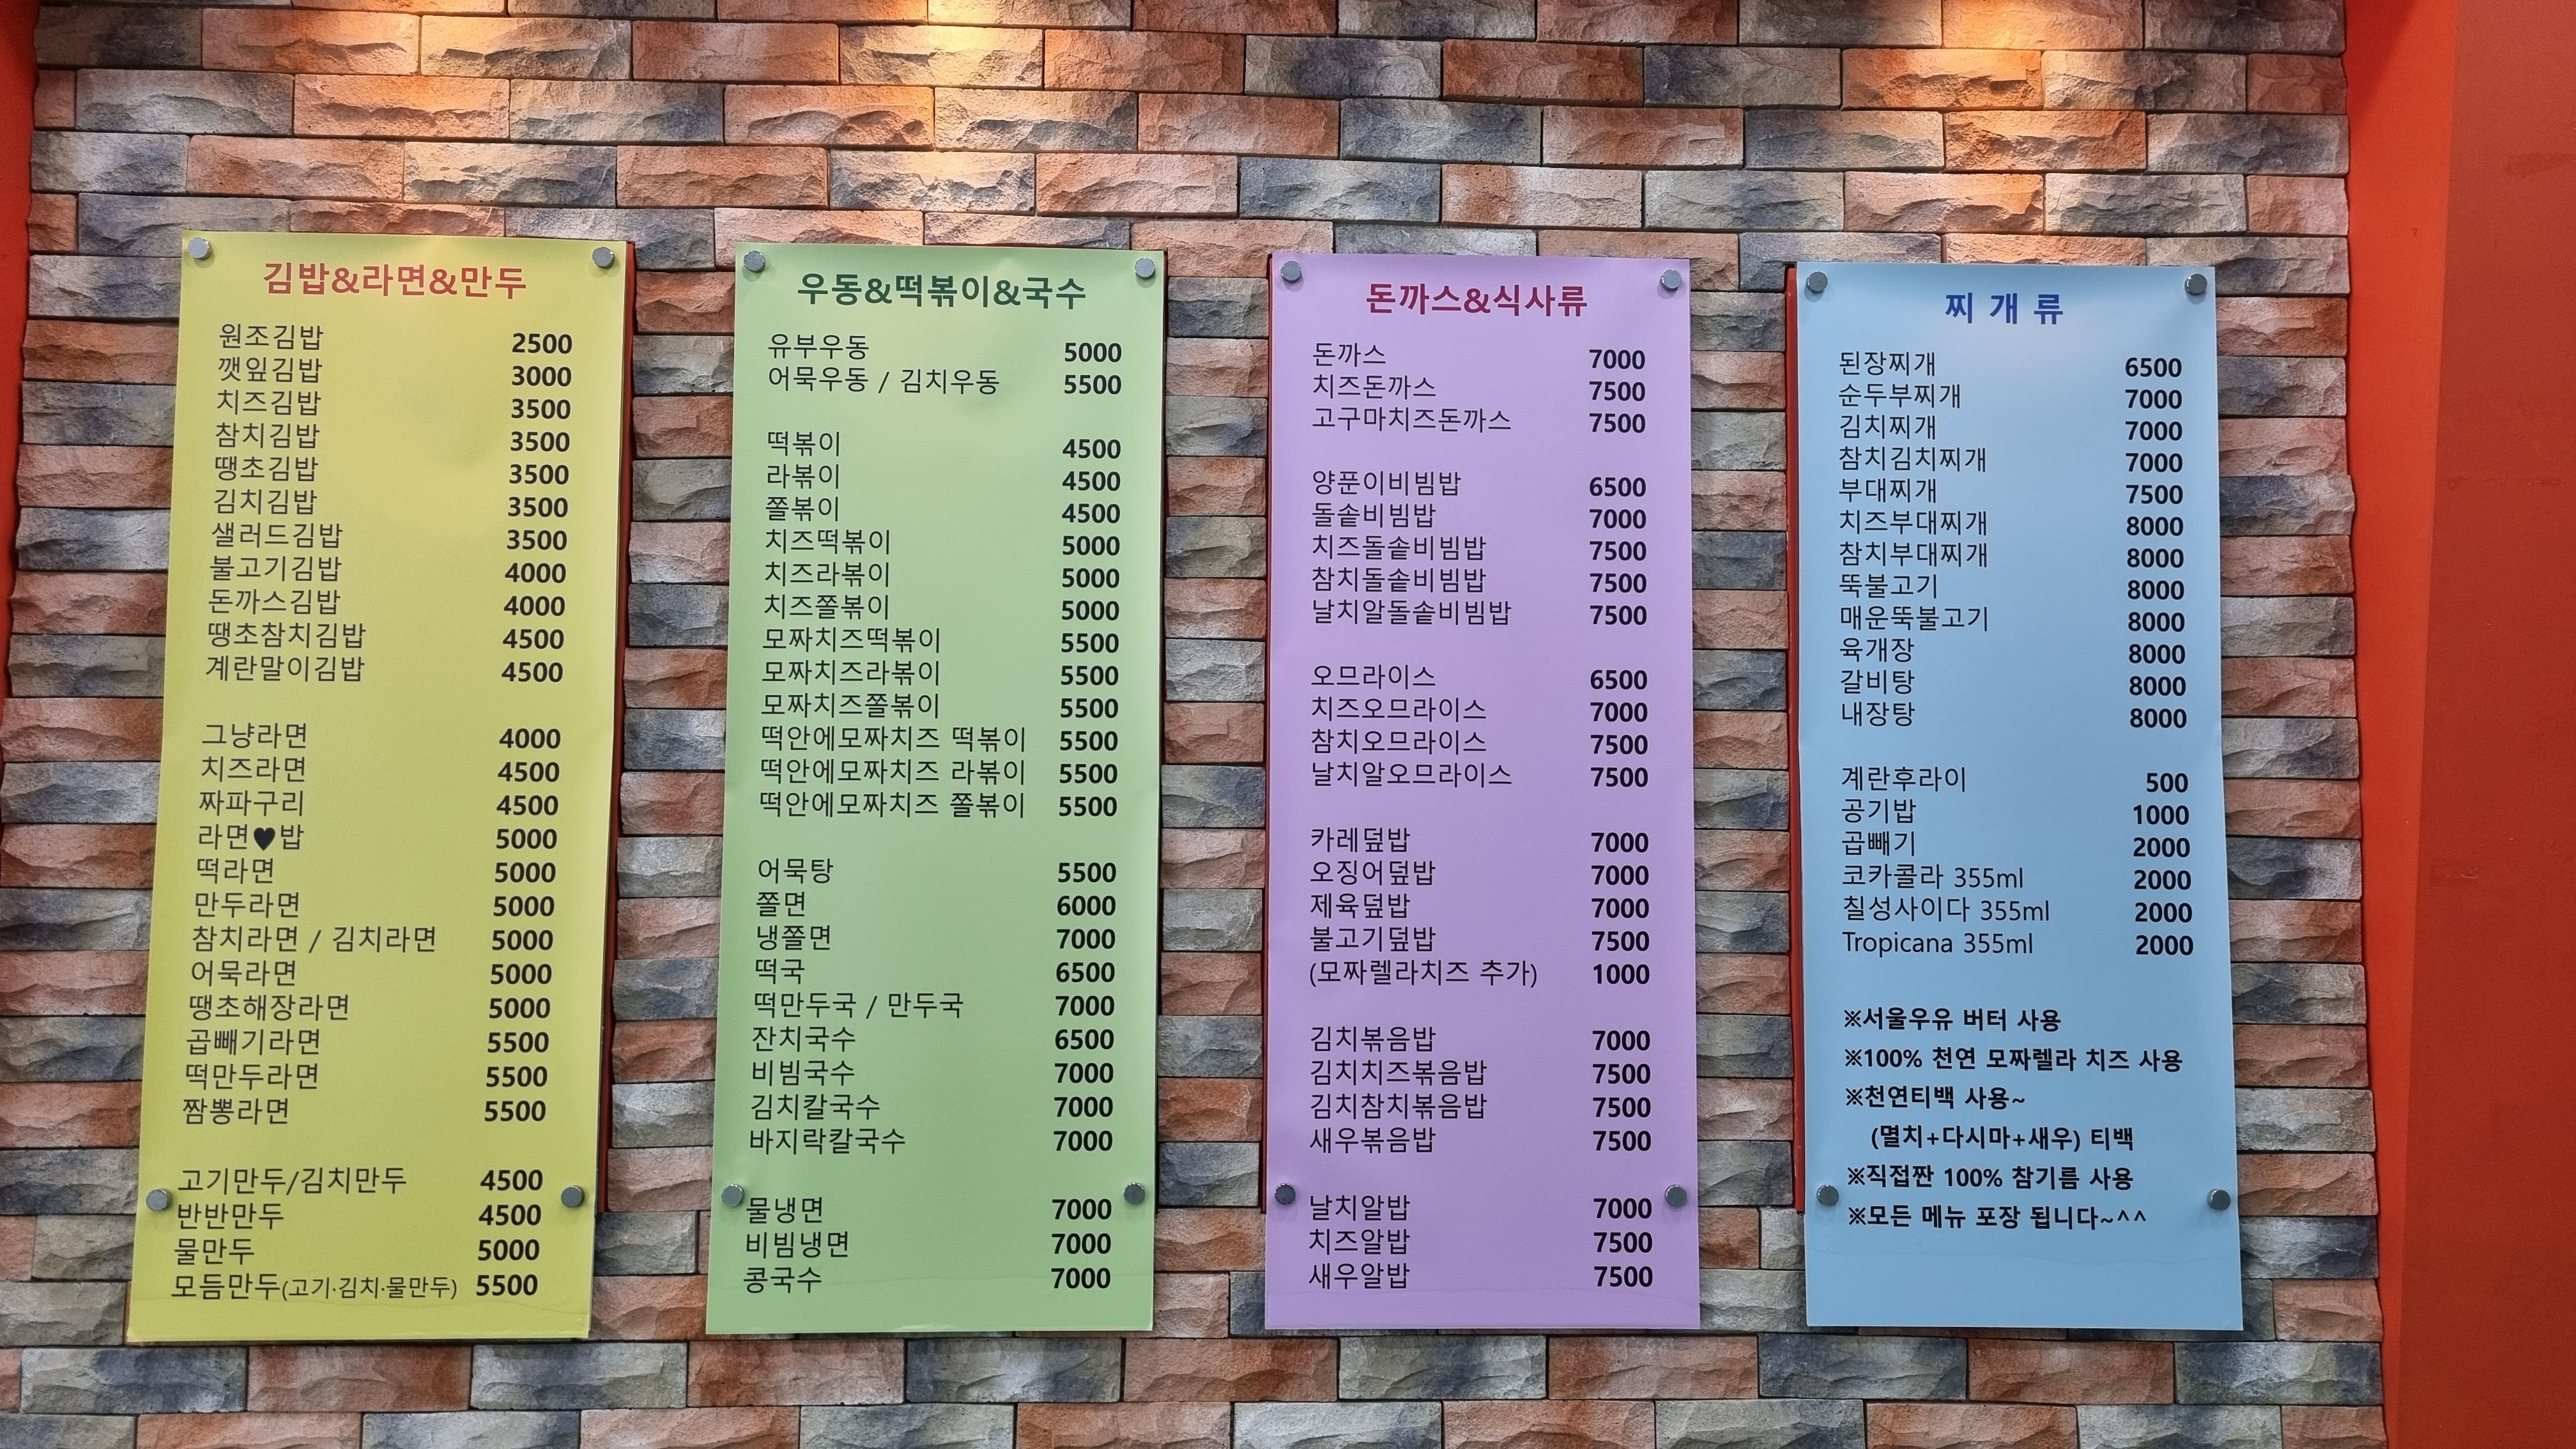 김밥&라면&만두
원조김밥 2500
깻잎김밥 3000
치즈김밥 3500
참치김밥 3500
땡초김밥 3500
김치김밥 3500
샐러드김밥 3500
불고기김밥 4000
돈까스김밥 4000
땡초참치김밥 4500
계란말이김밥 4500
그냥라면 4000
치즈라면 4500
짜파구리 4500
라면♥밥 5000
떡라면 5000
만두라면 5000
참치라면 / 김치라면 5000
어묵라면 5000
땡초해장라면 5000
곱빼기라면 5500
떡만두라면 5500
짬뽕라면 5500
고기만두/김치만두 4500
반반만두 4500
물만두 5000
모듬만두(고기·김치·물만두) 5500
우동&떡볶이&국수
유부우동 5000
어묵우동 / 김치우동 5500
떡볶이 4500
라볶이 4500
쫄볶이 4500
치즈떡볶이 5000
치즈라볶이 5000
치즈쫄볶이 5000
모짜치즈떡볶이 5500
모짜치즈라볶이 5500
모짜치즈쫄볶이 5500
떡안에모짜치즈 떡볶이 5500
떡안에모짜치즈 라볶이 5500
떡안에모짜치즈 쫄볶이 5500
어묵탕 5500
쫄면 6000
냉쫄면 7000
떡국 6500
떡만두국 / 만두국 7000
잔치국수 6500
비빔국수 7000
김치칼국수 7000
바지락칼국수 7000
물냉면 7000
비빔냉면 7000
콩국수 7000
돈까스&식사류
돈까스 7000
치즈돈까스 7500
고구마치즈돈까스 7500
양푼이비빔밥 6500
돌솥비빔밥 7000
치즈돌솥비빔밥 7500
참치돌솥비빔밥 7500
날치알돌솥비빔밥 7500
오므라이스 6500
치즈오므라이스 7000
참치오므라이스 7500
날치알오므라이스 7500
카레덮밥 7000
오징어덮밥 7000
제육덮밥 7000
불고기덮밥 7500
(모짜렐라치즈 추가) 1000
김치볶음밥 7000
김치치즈볶음밥 7500
김치참치볶음밥 7500
새우볶음밥 7500
날치알밥 7000
치즈알밥 7500
새우알밥 7500
찌 개 류
된장찌개 6500
순두부찌개 7000
김치찌개 7000
참치김치찌개 7000
부대찌개 7500
치즈부대찌개 8000
참치부대찌개 8000
뚝불고기 8000
매운뚝불고기 8000
육개장 8000
갈비탕 8000
내장탕 8000
계란후라이 500
공기밥 1000
곱빼기 2000
코카콜라 355ml 2000
칠성사이다 355ml 2000
Tropicana 355ml 2000
※서울우유 버터 사용
※100% 천연 모짜렐라 치즈 사용
※천연티백 사용~
(멸치+다시마+새우) 티백
※직접짠 100% 참기름 사용
※모든 메뉴 포장 됩니다~^^